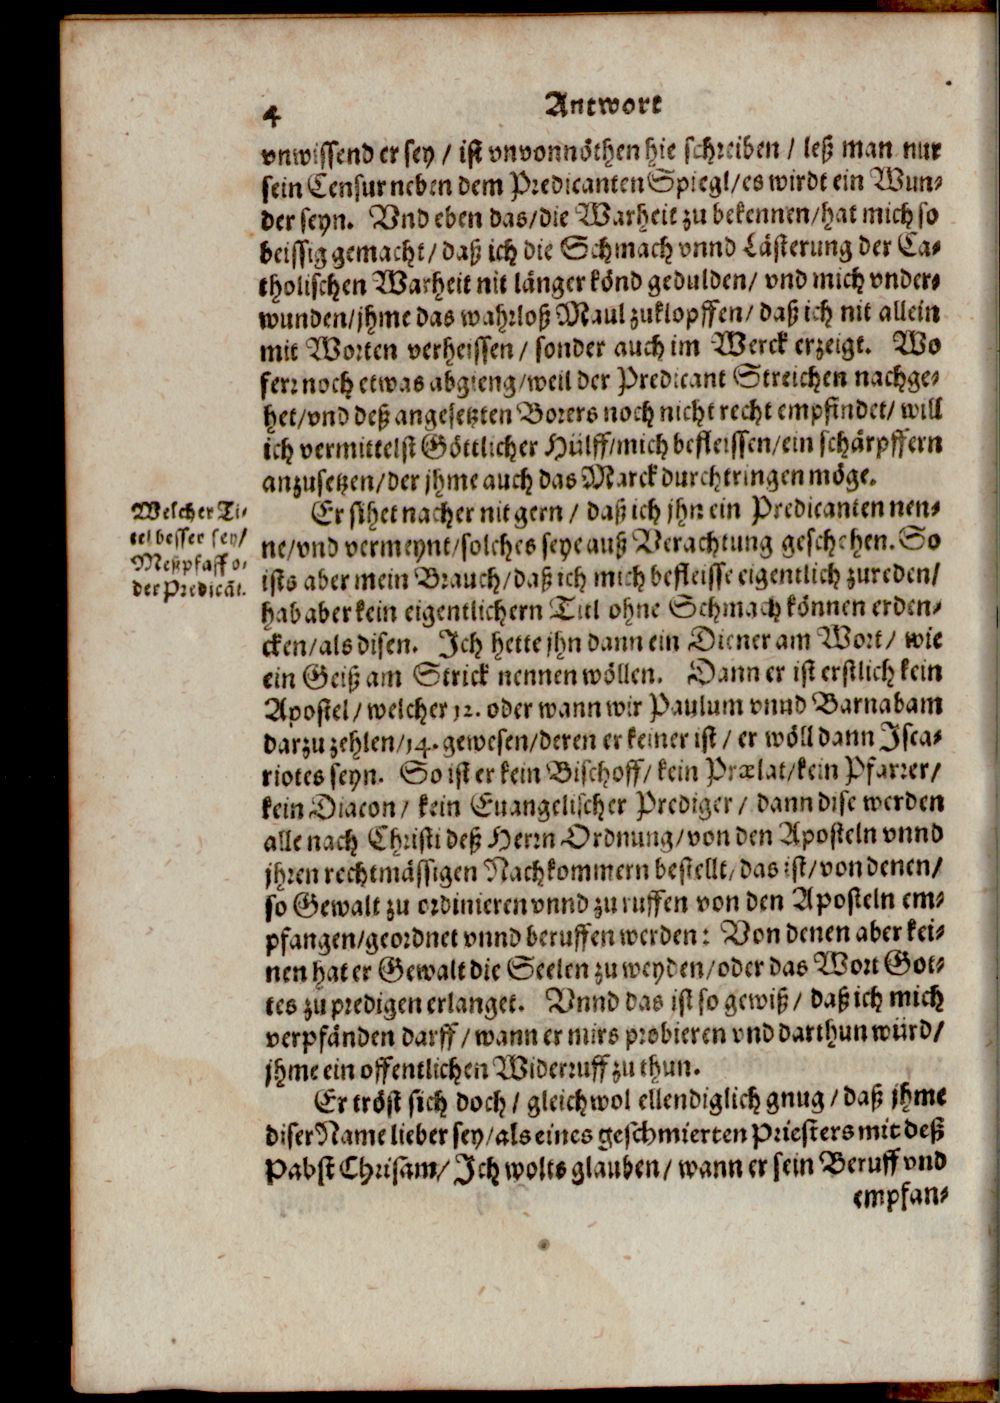 4
Antwort
vnwissend er sey / ist vnvonnöthen hie schreiben / leß man nur
sein Censur neben dem Predicanten Spiegl/es wirdt ein Wun⸗
der seyn. Vnd eben das/die Warheit zu bekennen/hat mich so
beissig gemacht/ daß ich die Schmach vnnd Lästerung der Ca⸗
tholischen Warheit nit länger könd gedulden/ vnd mich vnder⸗
wunden/jhme das wahrloß Maul zuklopffen/ daß ich nit allein
mit Worten verheissen / sonder auch im Werck erzeigt. Wo
ferr noch etwas abgieng/weil der Predicant Streichen nachge⸗
het/vnd deß angesetzten Borers noch nicht recht empfindet/ will
ich vermittelst Göttlicher Hülff/mich befleissen/ein schärpffern
anzusetzen/der jhme auch das Marck durchtringen möge.
Welcher Ti⸗
tel besser sey/
Meßpfaff o⸗
der Predicāt.
Er sihet nacher nit gern / daß ich jhn ein Predicanten nen⸗
ne/vnd vermeynt/solches seye auß Verachtung geschehen. So
ists aber mein Brauch/daß ich mich befleisse eigentlich zureden/
hab aber kein eigentlichern Titl ohne Schmach können erden⸗
cken/als disen. Ich hette jhn dann ein Diener am Wort/ wie
ein Geiß am Strick nennen wöllen. Dann er ist erstlich kein
Apostel/ welcher 12. oder wann wir Paulum vnnd Barnabam
darzu zehlen/14. gewesen/deren er keiner ist / er wöll dann Isca⸗
riotes seyn. So ist er kein Bischoff/ kein Prælat/kein Pfarrer/
kein Diacon/ kein Euangelischer Prediger / dann dise werden
alle nach Christi deß Herrn Ordnung/von den Aposteln vnnd
jhren rechtmässigen Nachkommern bestellt/das ist/von denen/
so Gewalt zu ordinieren vnnd zu ruffen von den Aposteln em⸗
pfangen/geordnet vnnd beruffen werden: Von denen aber kei⸗
nen hat er Gewalt die Seelen zu weyden/oder das Wort Got⸗
tes zu predigen erlanget. Vnnd das ist so gewiß/ daß ich mich
verpfänden darff / wann er mirs probieren vnd darthun würd/
jhme ein offentlichen Widerruff zu thun.
Er tröst sich doch / gleichwol ellendiglich gnug / daß jhme
diser Name lieber sey/als eines geschmierten Priesters mit deß
Pabst Chrisam/ Ich wolts glauben/ wann er sein Beruff vnd
empfan⸗